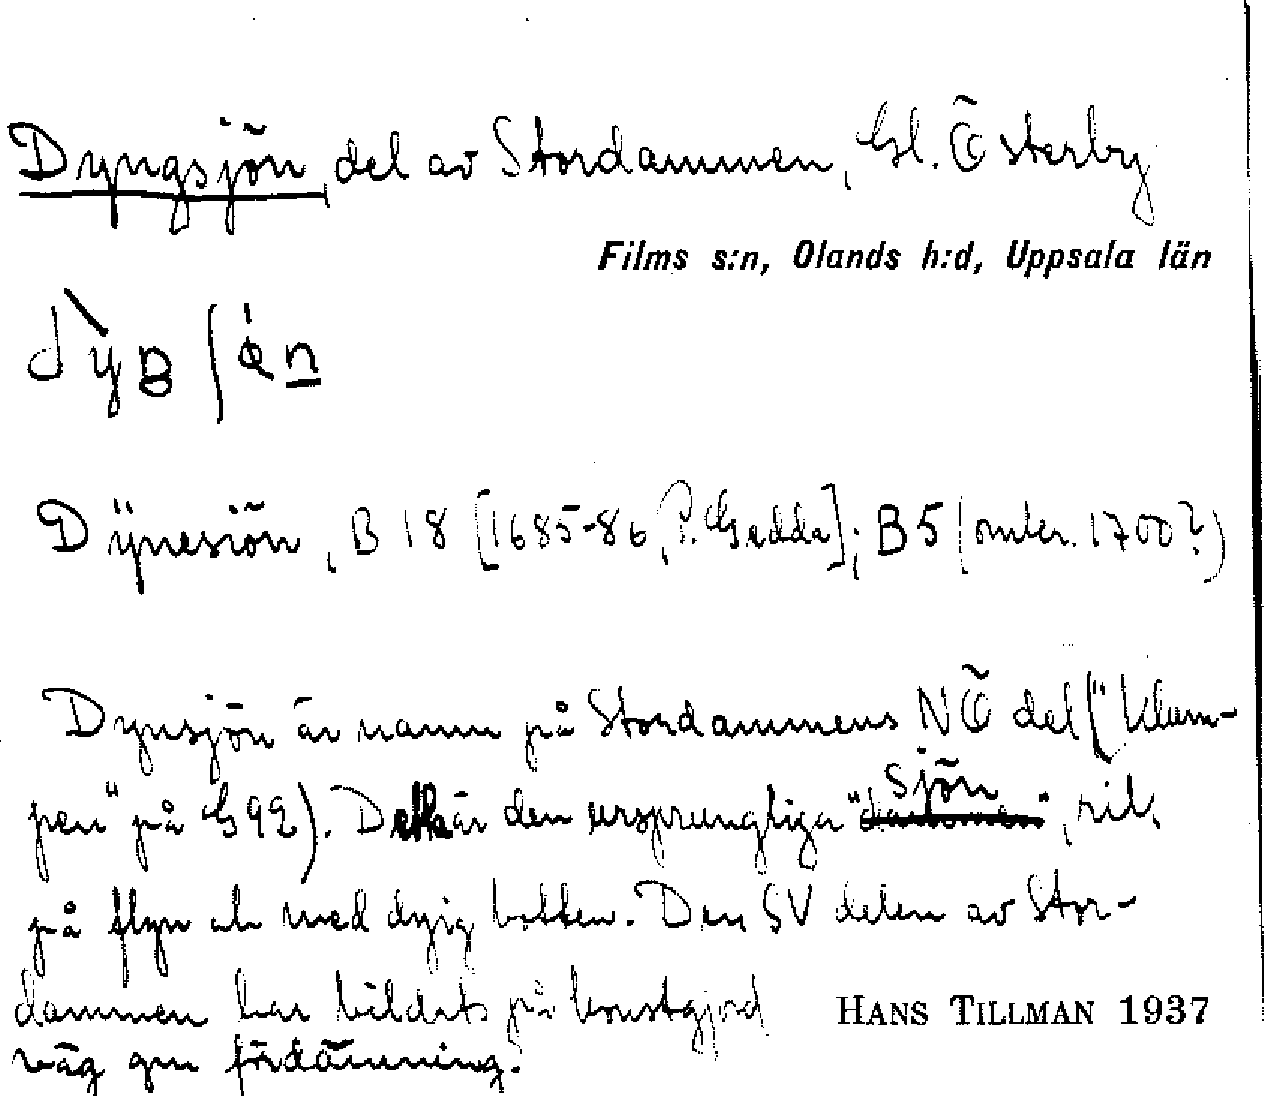 Dyngsjön, del av Stordammen, Gl. Österby
Films s:n, Olands h:d, Uppsala län
Dÿnesiön, B 18 [1685-86, P. Gedda]; B 5 (omkr. 1700?)
Dynsjön är namn på Stordammens NÖ del ("Klum-
pen" på G92). Detta är den ursprungliga "sjön", rik
på flyn och med dyig botten. Den SV delen av Stor-
dammen har bildats på konstgjord
väg gm fördämning.
HANS TILLMAN 1937